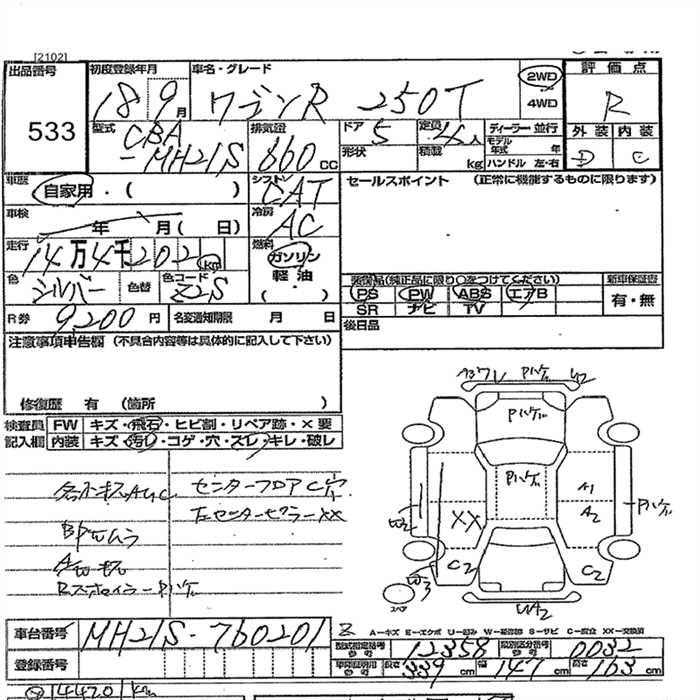 [2102]
出品番号
533
初度登録年月
18 9 月
車名・グレード
ワゴンR 250T
2WD
4WD
評価点
R
外装 内装
D C
型式
CBA
-MH21S
排気量
660 cc
ドア
5
形状
定員
人
積載
kg
ディーラー 並行
モデル
年式 年
ハンドル 左・右
車歴
自家用・( )
シフト
CAT
冷房
AC
車検
年 月(日)
走行
14万4千202 km
燃料
ガソリン
軽・油
( )
色
シルバー
色替
色コード
Z2S
R券 9,200 円
名変通知期限 月 日
セールスポイント (正常に機能するものに限ります)
装備品(純正品に限り○をつけてください)
PS PW ABS エアB
SR ナビ TV
新車保証書
有・無
後日品
注意事項申告欄 (不具合内容等は具体的に記入して下さい)
修復歴 有 (箇所 )
検査員 FW キズ・飛石・ヒビ割・リペア跡・×要
記入欄 内装 キズ・汚レ・コゲ・穴・スレ・キレ・破レ
センターフロアC穴
左センターピラーXX
Rスポイラー Pハゲ
Pハゲ
Pハゲ
Pハゲ
A1
A2
Pハゲ
XX
C2
C2
A-キズ E-エクボ U-凹み W-補修跡 S-サビ C-腐食 XX-交換済
車台番号 MH21S-760201
型式指定番号
参考
12358
類別区分番号
参考
0032
登録番号
長さ 339 cm
幅 147 cm
高さ 163 cm